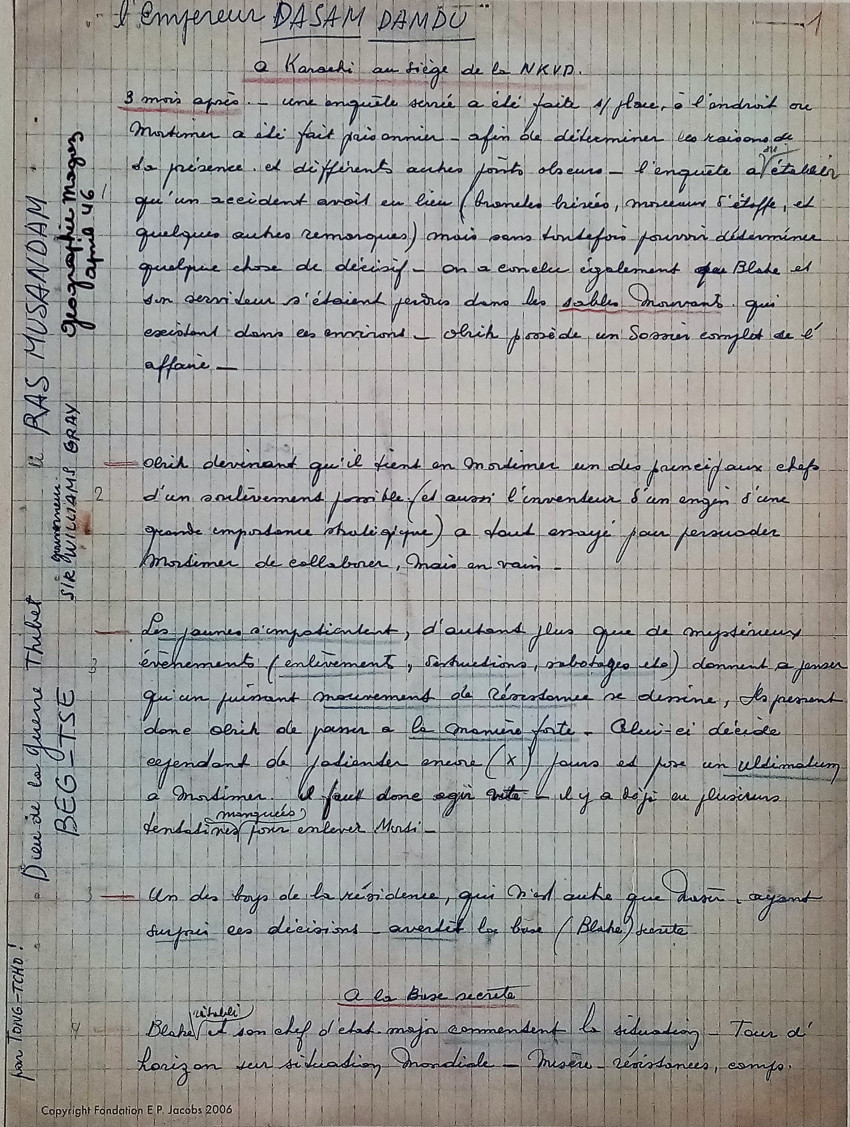 l'Empereur DASAM DAMDU
1
a Karachi au siège de la NKVD.
3 mois après. — une enquête serrée a été faite s/ place, à l'endroit ou
Mortimer a été fait prisonnier — afin de déterminer les raisons de
sa présence et différents autres points obscurs — l'enquête a établir
qu'un accident avait eu lieu (branches brisées, morceaux d'étoffe, et
quelques autres remarques) mais sans toutefois pouvoir déterminer
quelque chose de décisif — on a conclu également que Blake et
son serviteur s'étaient perdus dans les sables Mouvants qui
existent dans ces environs — Olrik possède un Dossier complet de l'
affaire —
— Olrik devinant qu'il tient en Mortimer un des principaux chefs
2 d'un soulèvement possible (et aussi l'inventeur d'un engin d'une
grande importance stratégique) a tout essayé pour persuader
Mortimer de collaborer, Mais en vain —
— Les jaunes s'impatientent, d'autant plus que de mystérieux
3 évènements (enlèvement, destructions, sabotages etc) donnent a penser
qu'un puissant mouvement de résistance se dessine, Ils pressent
donc Olrik de passer a la manière forte — Celui-ci décide
cependant de patienter encore (X) jours et pose un ultimatum
a Mortimer. il faut donc agir vite — il y a déjà eu plusieurs
manquées
tentatives pour enlever Morti —
3 — Un des boys de la résidence, qui n'est autre que Nasir, ayant
surpris ces décisions — avertit la base (Blake) secrète
A la Base secrète
rétabli
4 — Blake et son chef d'état major commentent la situation — Tour d'
horizon sur situation Mondiale — Misère — résistances, camps.
RAS MUSANDAM
Geographic Magaz
april 46
gouverneur
SIR WILLIAMS GRAY
Dieu de la guerre Thibet
BEG-TSE
par TONG-TCHO!
Copyright Fondation E P. Jacobs 2006